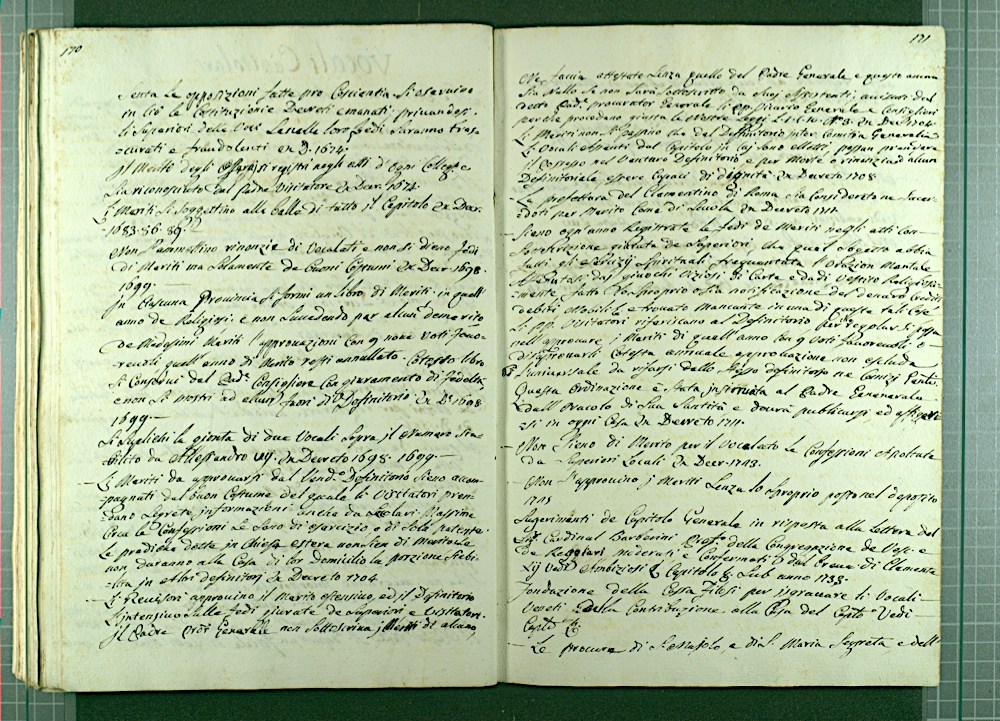 170
senta le opposizioni fatte pro Coscientia si osservino
in ciò le Costituzioni e Decreti emanati, privandosi
li Superiori delle Voci se nelle loro fedi saranno tras-
curati e fraudolenti ex D. 1674.
Il Merito degli si registri negli atti d'ogni Colleg. e
sia riconosciuto dal Padre Visitatore Ex Decr. 1674.
Li Meriti si soggettino alle balle di tutto il Capitolo Ex Decr.
1683. 86. 89.
Non s'ammettino rinonzie di Vocalati e non si dieno fedi
di Meriti ma solamente de buoni Costumi Ex Decr. 1698.
1699.
In Ciascuna Provincia si formi un libro di Meriti in quell'
anno de Religiosi: e non succedendo per alcun demerito
de Medesimi Meriti l'approvazioni con 9 nove Voti favo-
revoli quell'anno di Merito resti annullato. Cotesto libro
si Conservi dal Pad. Consigliere con giuramento di fedeltà
e non si mostri ad alcun fuori di Definitorio Ex D. 1698.
1699.
Si scielghi la gionta di due Vocali sopra il numero sta-
bilito da Alessandro VII. Ex Decreto 1695. 1699.
Li Meriti da approvarsi dal Vend. Definitorio sieno acom-
pagnati dal buon Costume del quale li Visitatori pren-
dano segreta informazioni anche da secolari Massime
circa le Confessioni se sono di esercizio o di sola patente
Le prediche dette in Chiesa estera non sien di Merito se
non daranno alla Casa di lor domicilio la porzione stabi-
lita in altri definitorj Ex Decreto 1704.
Li Revisori approvino il Merito estensivo, ed il Definitorio
l'intensivo alle fedi giurate de Superiori e Visitatori.
Il Padre Generale non sottoscriva i Meriti di alcuno,
171
Ne faccia attestato senza quello del Padre Generale e questo ancora
sia Nullo se non sarà sottoscritto da suoi Assistenti, avisato del
resto Pad. procurator Generale il Vicario Generale e Consiglieri
perche procedano giusta le Nostre Leggi Ex Decr. 1704.
Li Meriti non si passino che dal Definitorio inter Comitia Generalia
Li Vocali assenti dal Capitolo in cui sono eletti, possan prendere
il Possesso nel Venturo Definitorio e per Morte o rinonzia d'alcun
Definitoriale, essere Capaci di dignità Ex Decreto 1708.
La prefettura del Clementino di Roma sia Considerata ne sacer-
doti per Merito Come di Scuola Ex Decreto 1711.
Sieno ogn'anno Registrate le fedi de Meriti negli atti con
sottoscrizione giurata de Superiori, che quel sogetto abbia
fatti gli esercizj Spirituali frequentata l'Orazion Mentale
Astenutosi dai giuochi Viziosi di Carte e Dadi Vestito Religiosa-
mente, fatto lo Sproprio o sia notificazione del denaro Crediti
debiti Mobili e trovato Mancante in una di queste tali Cose
Li PP. Visitatori riferiscano al Definitorio per si possa
nell'approvare i Meriti di quell'anno con 9 Voti favorevoli o
disaprovarli Cotesta annuale approvazione non escluda
l'universale da rifarsi dallo stesso definitorio ne Comizj Genti.
Questa Ordinazione è stata inserinuta al Padre Generale
dall'Oracolo di Sua Santità e dovrà publicarsi ed affiger-
si in ogni Casa Ex Decreto 1711.
Non sieno di Merito per il Vocalato le Confessioni Ascoltate
da Superiori Locali Ex Decr. 1713.
Non s'approvino i Meriti senza lo sproprio posto nel deposito
1715
Sugerimenti de Capitolo Generale in risposta alla Lettera del
Sig. Cardinal Barberini Pref. della Congregazione de Vesc. e
de Regolari moderati e Confermati dal Breve di Clemente
XII Vedi Ambiziosi Capitolo sub anno 1738.
Fondazione della Cassa Filesi per isgravare li Vocali
Veneti della Contribuzione alla Casa del Capto Vedi
Capto
Le procure di S. Majolo, e di S. Maria Segreta, e dell'